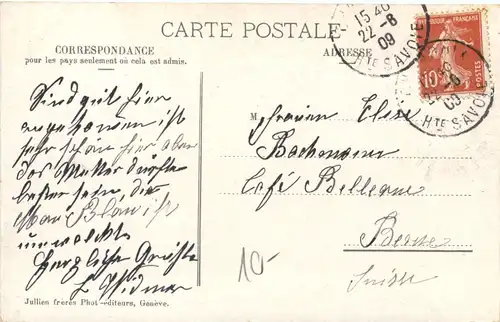 CARTE POSTALE
CORRESPONDANCE
pour les pays seulement où cela est admis.
ADRESSE
15 40
22-8
09
HTE SAVOIE
10
POSTES
22-8
09
HTE SAVOIE
Sind gut hier
angekommen ist
sehr schön hier aber
das Wetter dürfte
besser sein, der
Mont Blanc ist
umwölkt
Herzliche Grüsse
E. Widmer
M
Frauen Elise
Bachmann
Café Bellevue
Berne
Suisse
10-
Jullien frères Phot.-éditeurs, Genève.